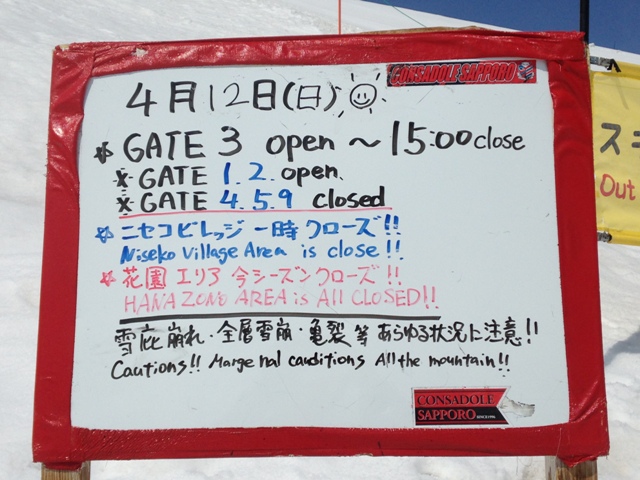 CONSADOLE SAPPORO
4月12日(日)
☆ GATE 3 open ~ 15:00 close
※ GATE 1.2. open.
※ GATE 4.5.9 closed
☆ ニセコビレッジ 一時クローズ!!
Niseko Village Area is close!!
☆ 花園エリア 今シーズンクローズ!!
HANAZONO AREA is All CLOSED!!
雪庇崩れ・全層雪崩・亀裂 等 あらゆる状況に注意!!
Cautions!! Marge nal cauditions All the mountain!!
CONSADOLE
SAPPORO SINCE1996
スキ
Out